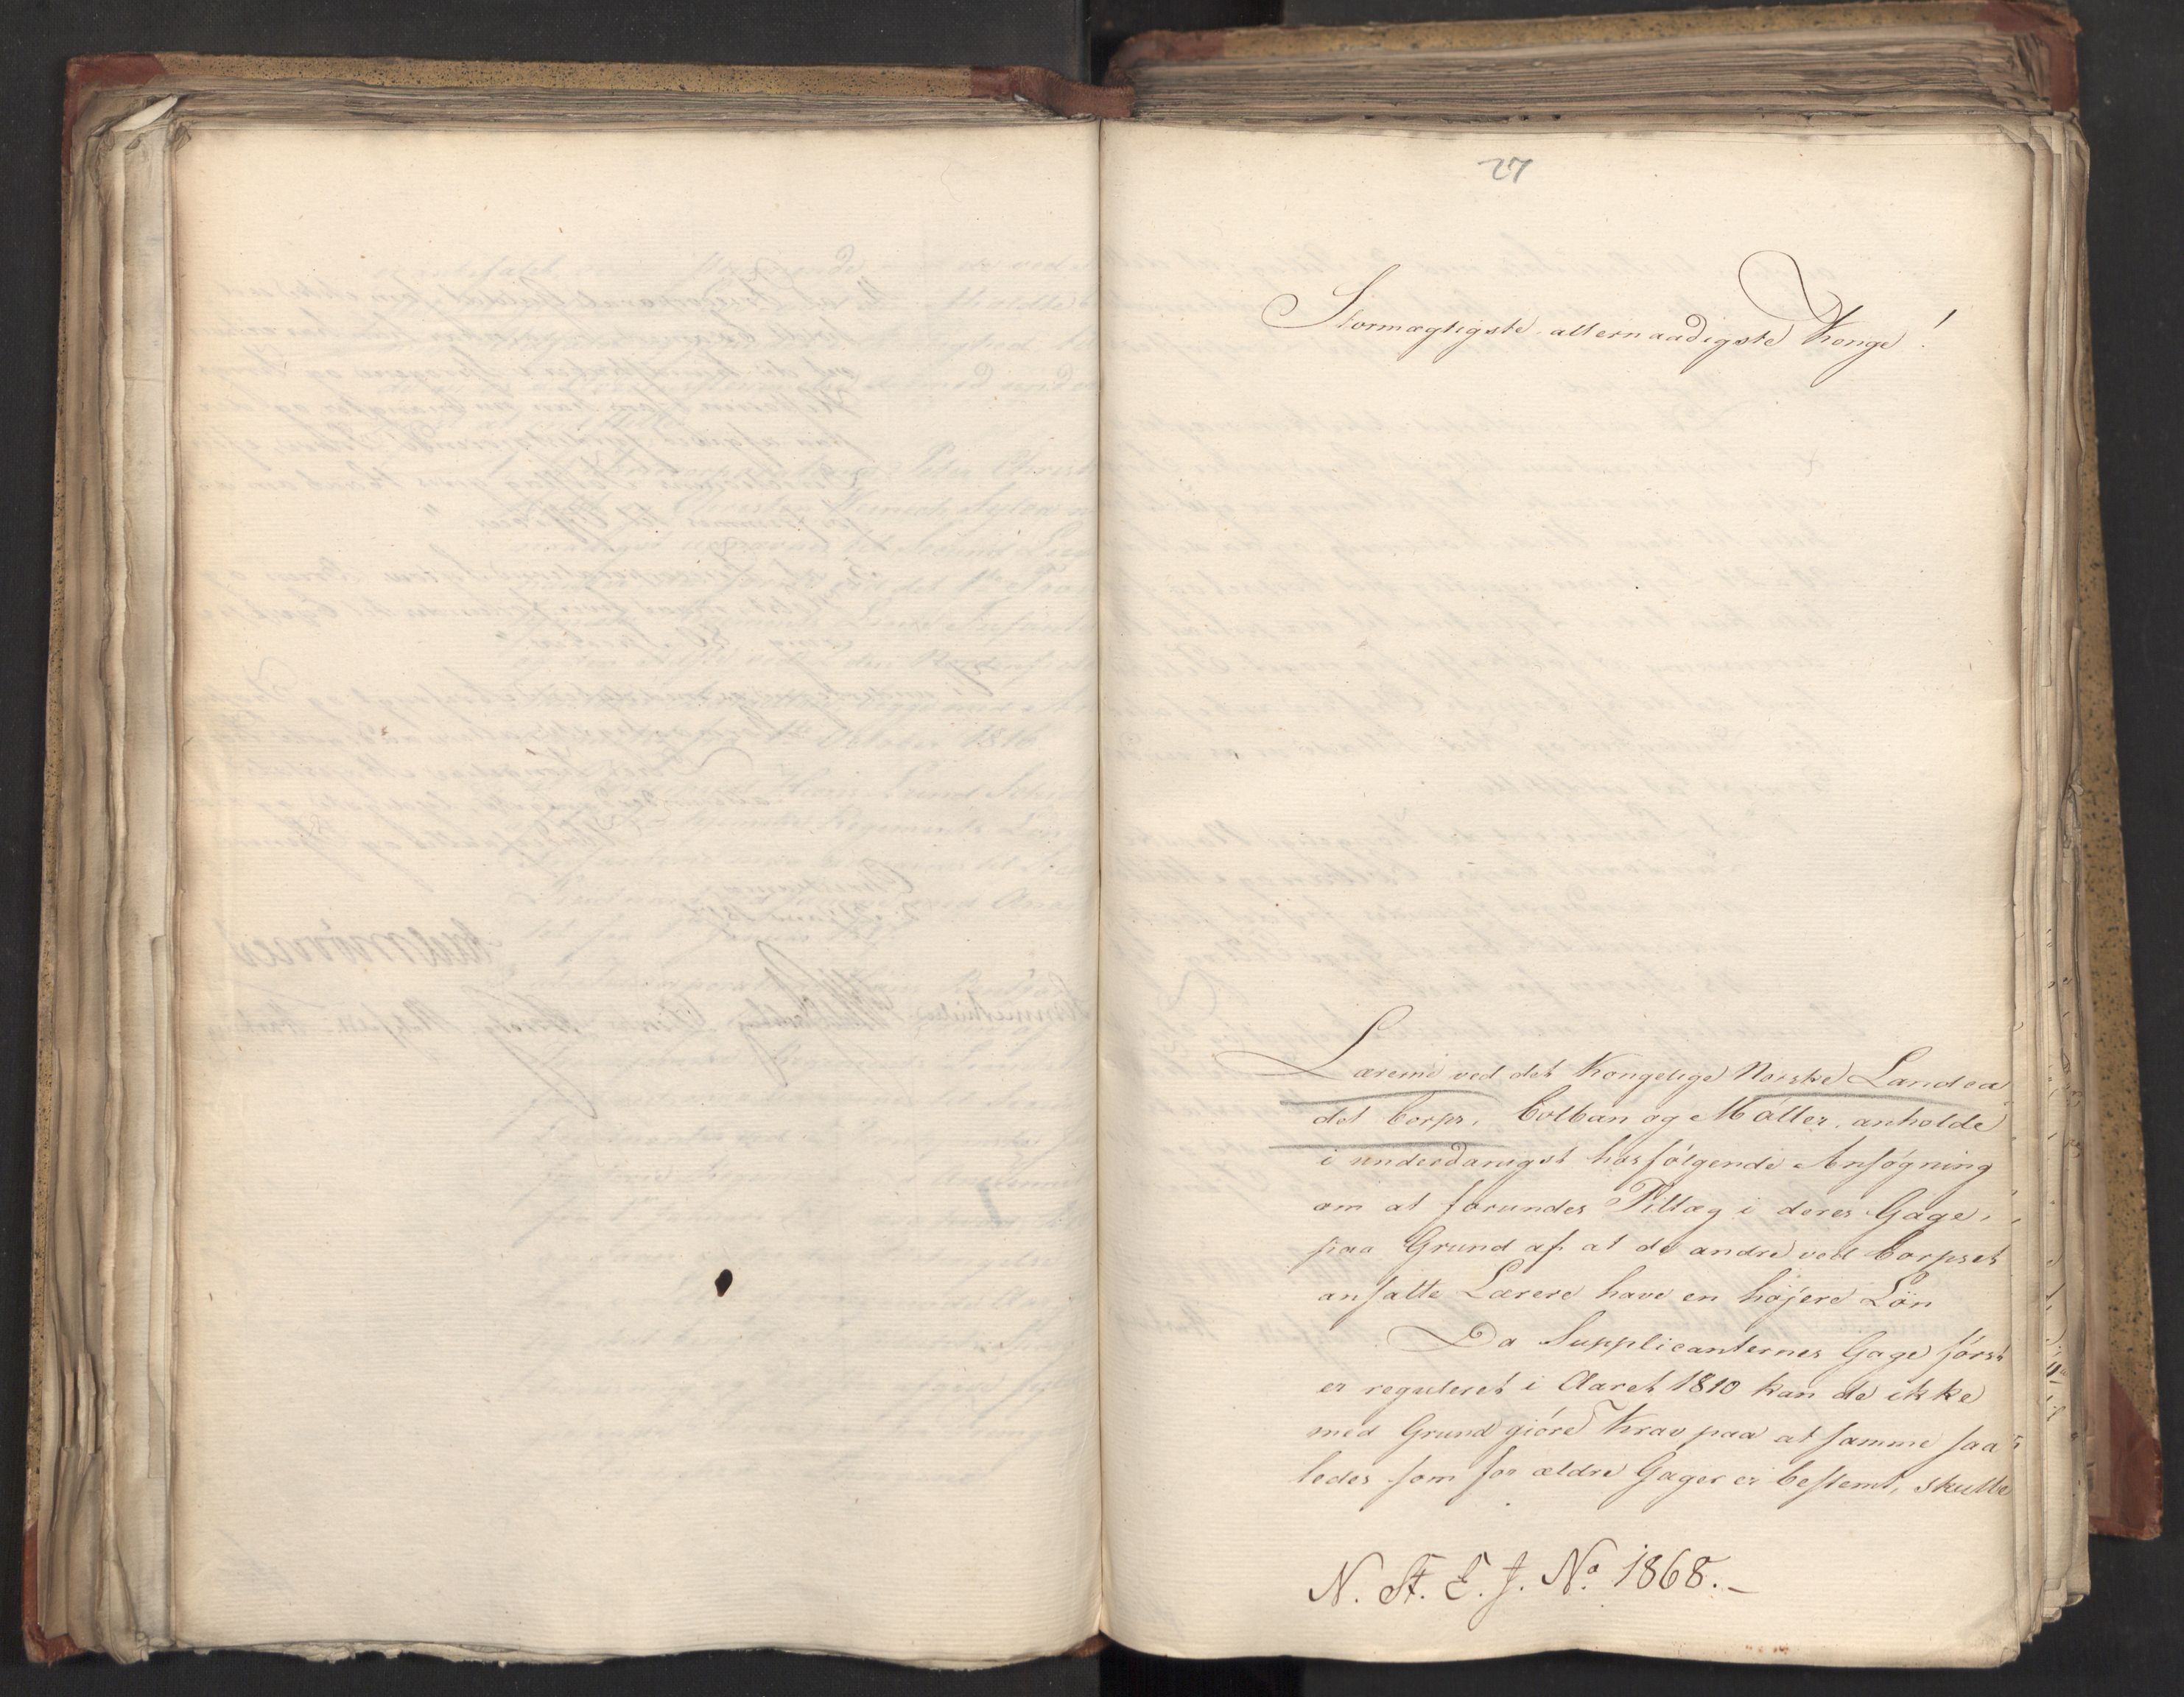 27
Stormægtigste allernaadigste Konge!
Lærerne ved det Kongelige Norske Landca
det Corps, Colban og Møller, anholde
i underdanigst hosfölgende Ansøgning
om at forundes Tillæg i deres Gage,
paa Grund af at de andre ved Corpset
ansatte Lærere have en højere Lön
Da Supplicanternes Gage först
er reguleret i Aaret 1810 kan de ikke
med Grund giöre Krav paa at samme saa
ledes som for ældre Gager er bestemt, skulle
N. St. E. J. No 1868.-